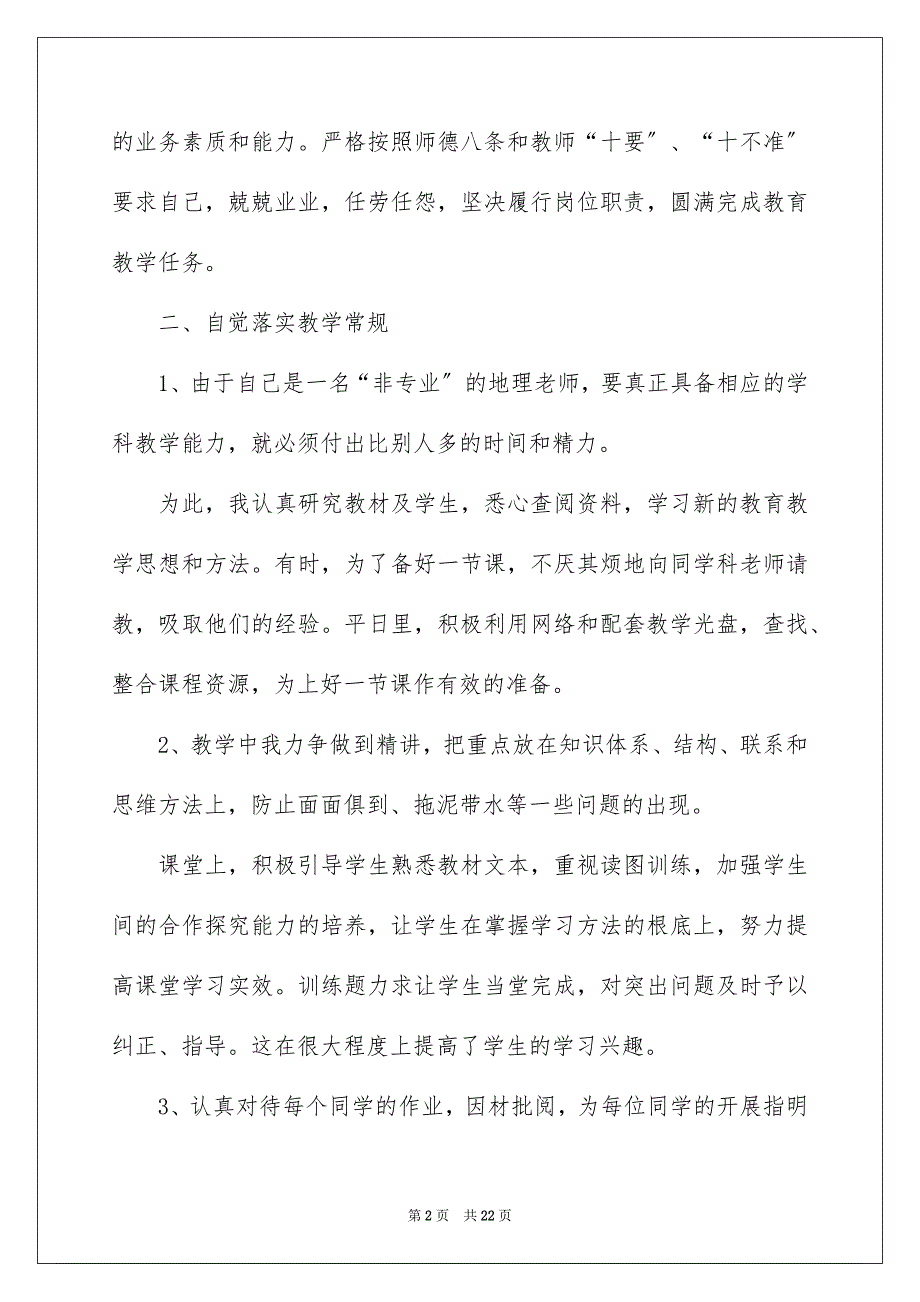 的业务素质和能力。严格按照师德八条和教师“十要〞、“十不准〞
要求自己，兢兢业业，任劳任怨，坚决履行岗位职责，圆满完成教育
教学任务。
二、自觉落实教学常规
1、由于自己是一名“非专业〞的地理老师，要真正具备相应的学
科教学能力，就必须付出比别人多的时间和精力。
为此，我认真研究教材及学生，悉心查阅资料，学习新的教育教
学思想和方法。有时，为了备好一节课，不厌其烦地向同学科老师请
教，吸取他们的经验。平日里，积极利用网络和配套教学光盘，查找、
整合课程资源，为上好一节课作有效的准备。
2、教学中我力争做到精讲，把重点放在知识体系、结构、联系和
思维方法上，防止面面俱到、拖泥带水等一些问题的出现。
课堂上，积极引导学生熟悉教材文本，重视读图训练，加强学生
间的合作探究能力的培养，让学生在掌握学习方法的根底上，努力提
高课堂学习实效。训练题力求让学生当堂完成，对突出问题及时予以
纠正、指导。这在很大程度上提高了学生的学习兴趣。
3、认真对待每个同学的作业，因材批阅，为每位同学的开展指明
第 2 页 共 22 页